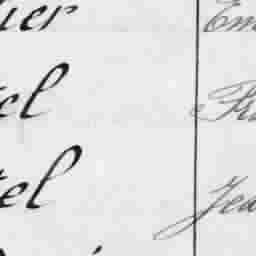 ier Em
tel Fr
tel Jea